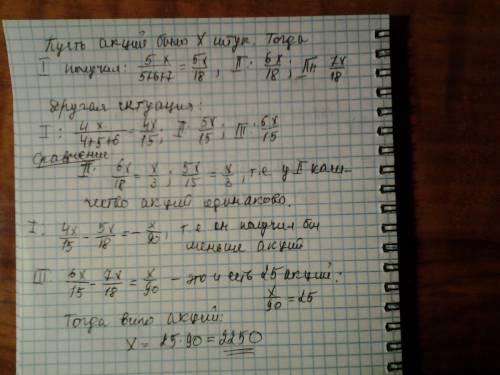 Пусть акций было x штук. Тогда
I получил: 5x/5+6+7 = 5x/18; II: 6x/18; III: 7x/18
Другая ситуация:
I: 4x/4+5+6 = 4x/15; II: 5x/15; III: 6x/15
Сравнение
II: 6x/18 = x/3; 5x/15 = x/3, т.е у II коли-
чество акций одинаково.
I: 4x/15 - 5x/18 = -x/90, т.е он получил бы
меньше акций
III: 6x/15 - 7x/18 = x/90 - это и есть 25 акций:
x/90 = 25
Тогда было акций:
x = 25·90 = 2250